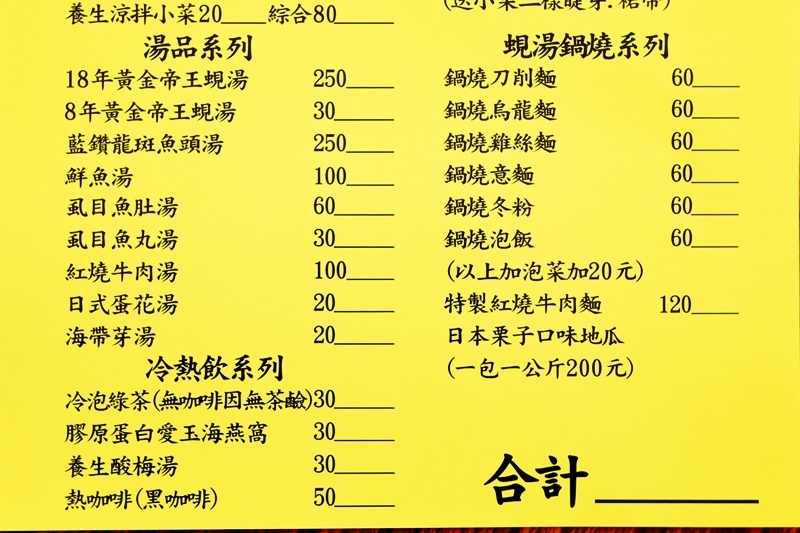 養生涼拌小菜20____綜合80_____
湯品系列
18年黃金帝王蜆湯 250_____
8年黃金帝王蜆湯 30_____
藍鑽龍斑魚頭湯 250_____
鮮魚湯 100_____
虱目魚肚湯 60_____
虱目魚丸湯 30_____
紅燒牛肉湯 100_____
日式蛋花湯 20_____
海帶芽湯 20_____
冷熱飲系列
冷泡綠茶(無咖啡因無茶鹼)30_____
膠原蛋白愛玉海燕窩 30_____
養生酸梅湯 30_____
熱咖啡(黑咖啡) 50_____
蜆湯鍋燒系列
鍋燒刀削麵 60____
鍋燒烏龍麵 60____
鍋燒雞絲麵 60____
鍋燒意麵 60____
鍋燒冬粉 60____
鍋燒泡飯 60____
(以上加泡菜加20元)
特製紅燒牛肉麵 120____
日本栗子口味地瓜
(一包一公斤200元)
合計________